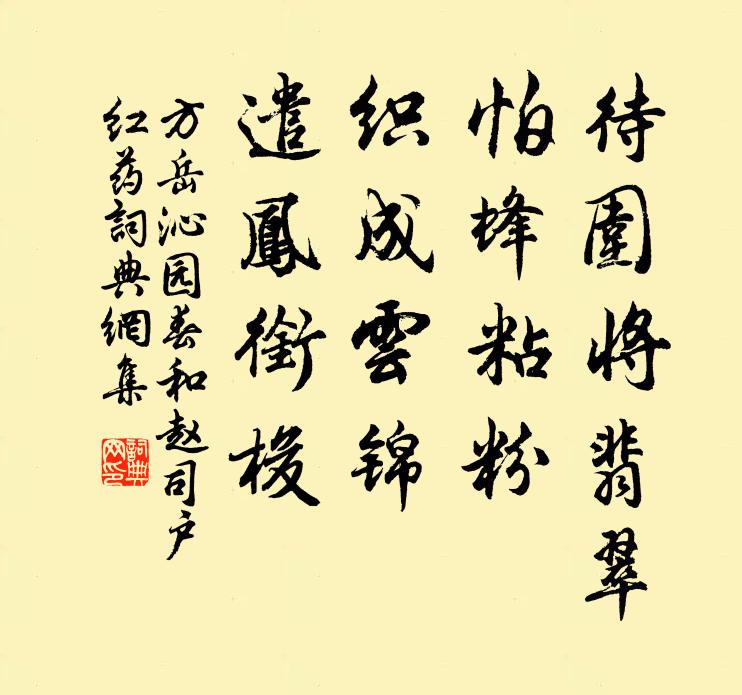 待圍将翡翠
怕蜂粘粉
织成雲锦
遣鳳銜梭
方岳沁园春和赵司户
红药詞典網集
詞典
网印